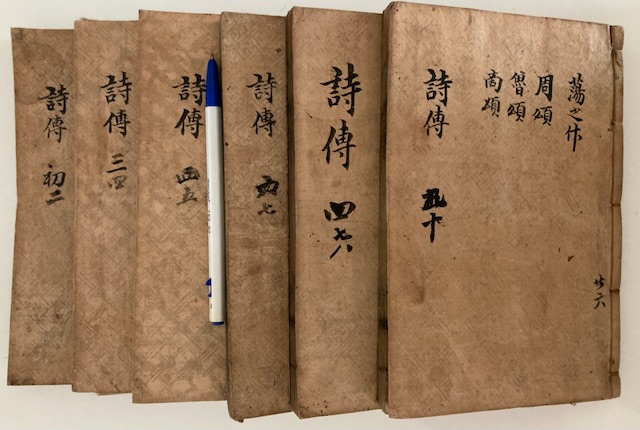 蕩之什
周頌
魯頌
商頌
詩傳
十
廿六
詩傳
四七八
詩傳
七
詩傳
五
詩傳
三四
詩傳
初二